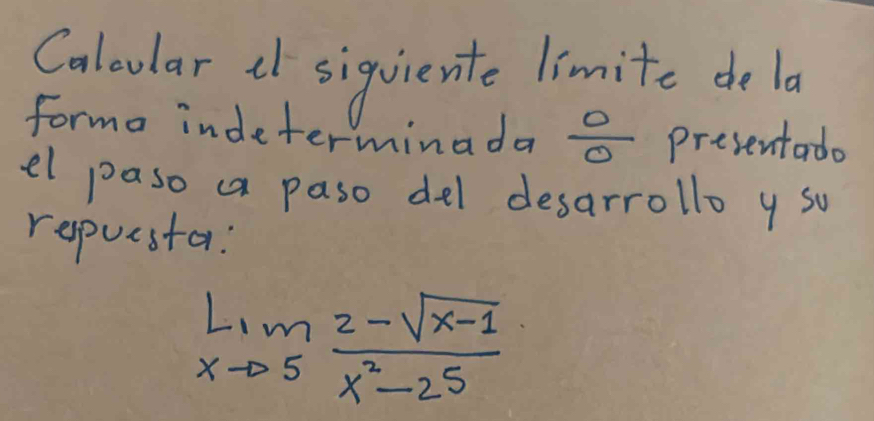 Calcular el siguiente límite de la
forma indeterminada 0/0 presentado
el paso a paso del desarrollo y su
respuesta:
Lim 2-√x-1
x→5 x²-25